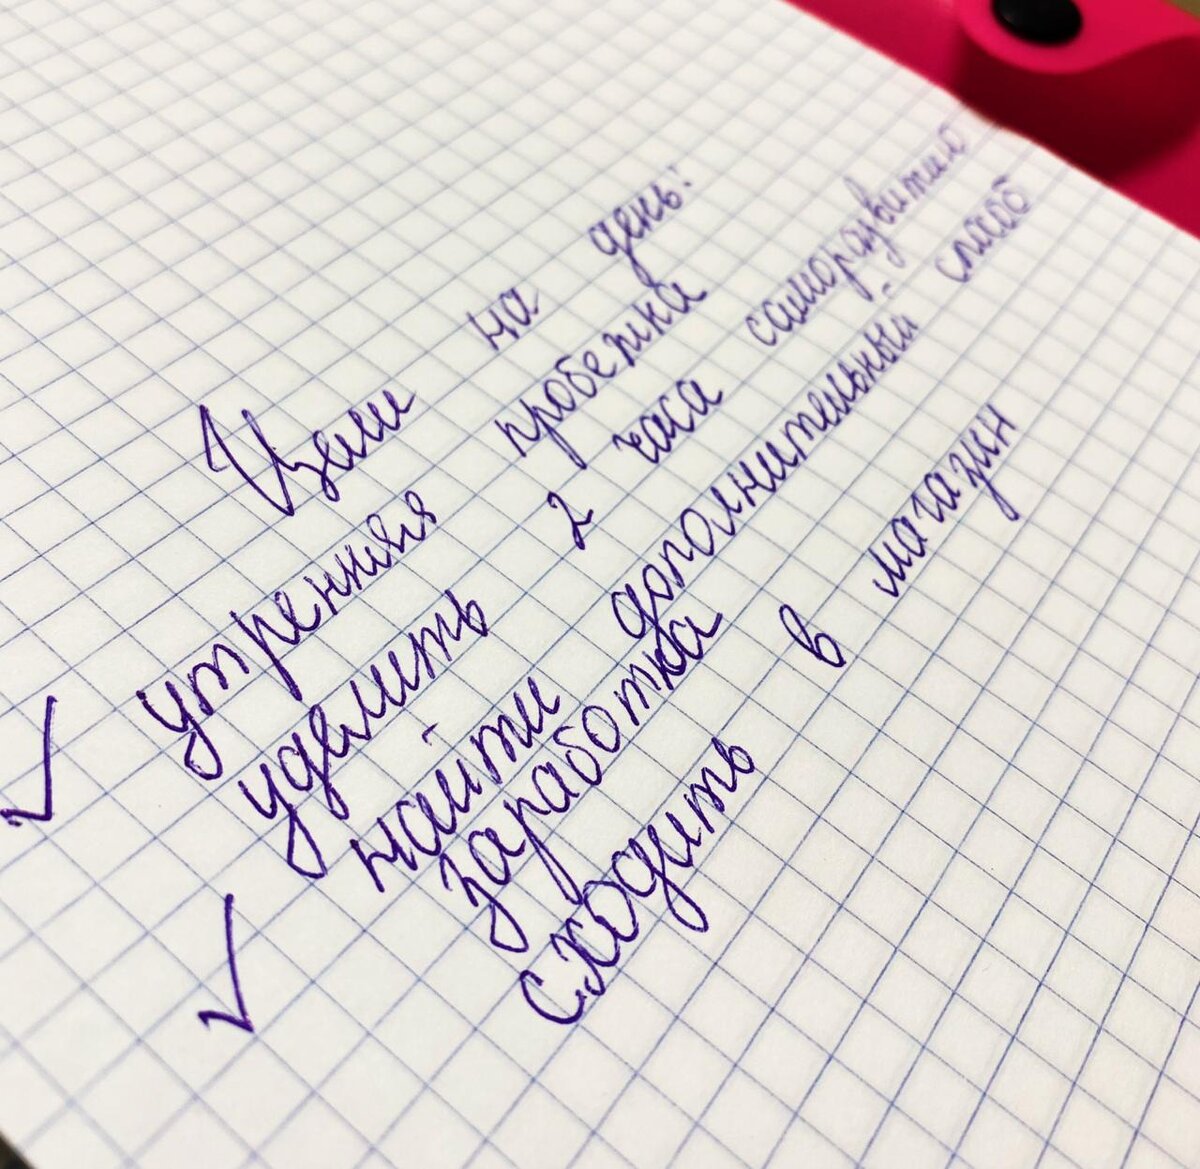 Цели на день:
✓ утренняя пробежка
уделить 2 часа саморазвитию
✓ найти дополнительный способ
заработка
сходить в магазин